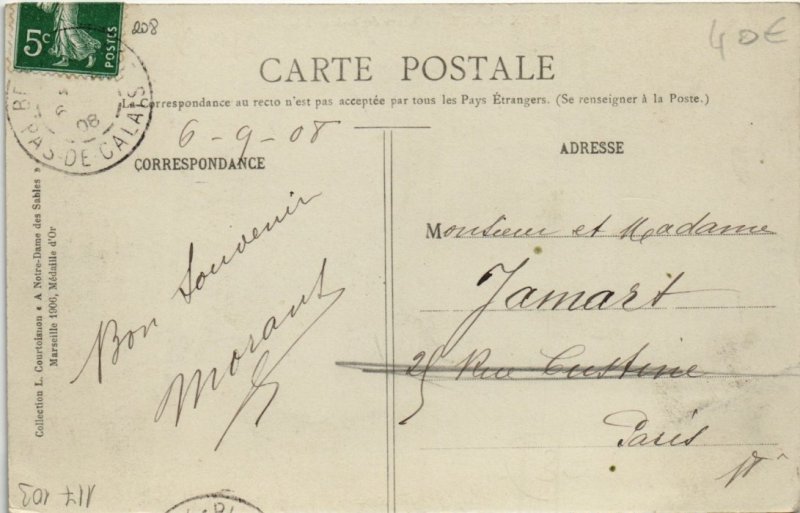 5c
POSTES
208
40€
PAS-DE-CALAIS
6
08
CARTE POSTALE
La Correspondance au recto n'est pas acceptée par tous les Pays Étrangers. (Se renseigner à la Poste.)
6-9-08
CORRESPONDANCE
Bon Souvenir
Morant
ADRESSE
Monsieur et Madame
Jamart
25 Rue Custine
Paris
Collection L. Courtoisnon « A Notre-Dame des Sables »
Marseille 1906, Médaille d'Or
117 103